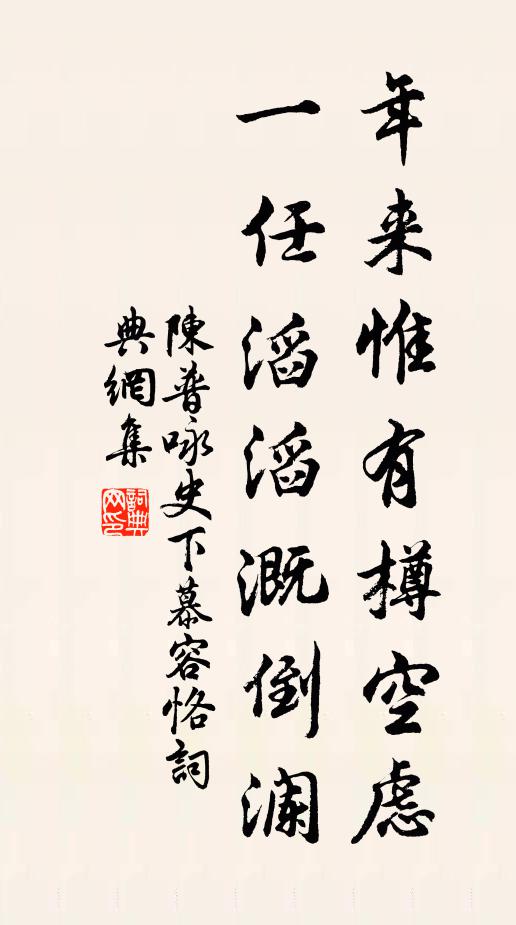 年来惟有樽空慮
一任滔滔溉倒瀾
陳普咏史下慕容恪詞
典網集
詞典网印